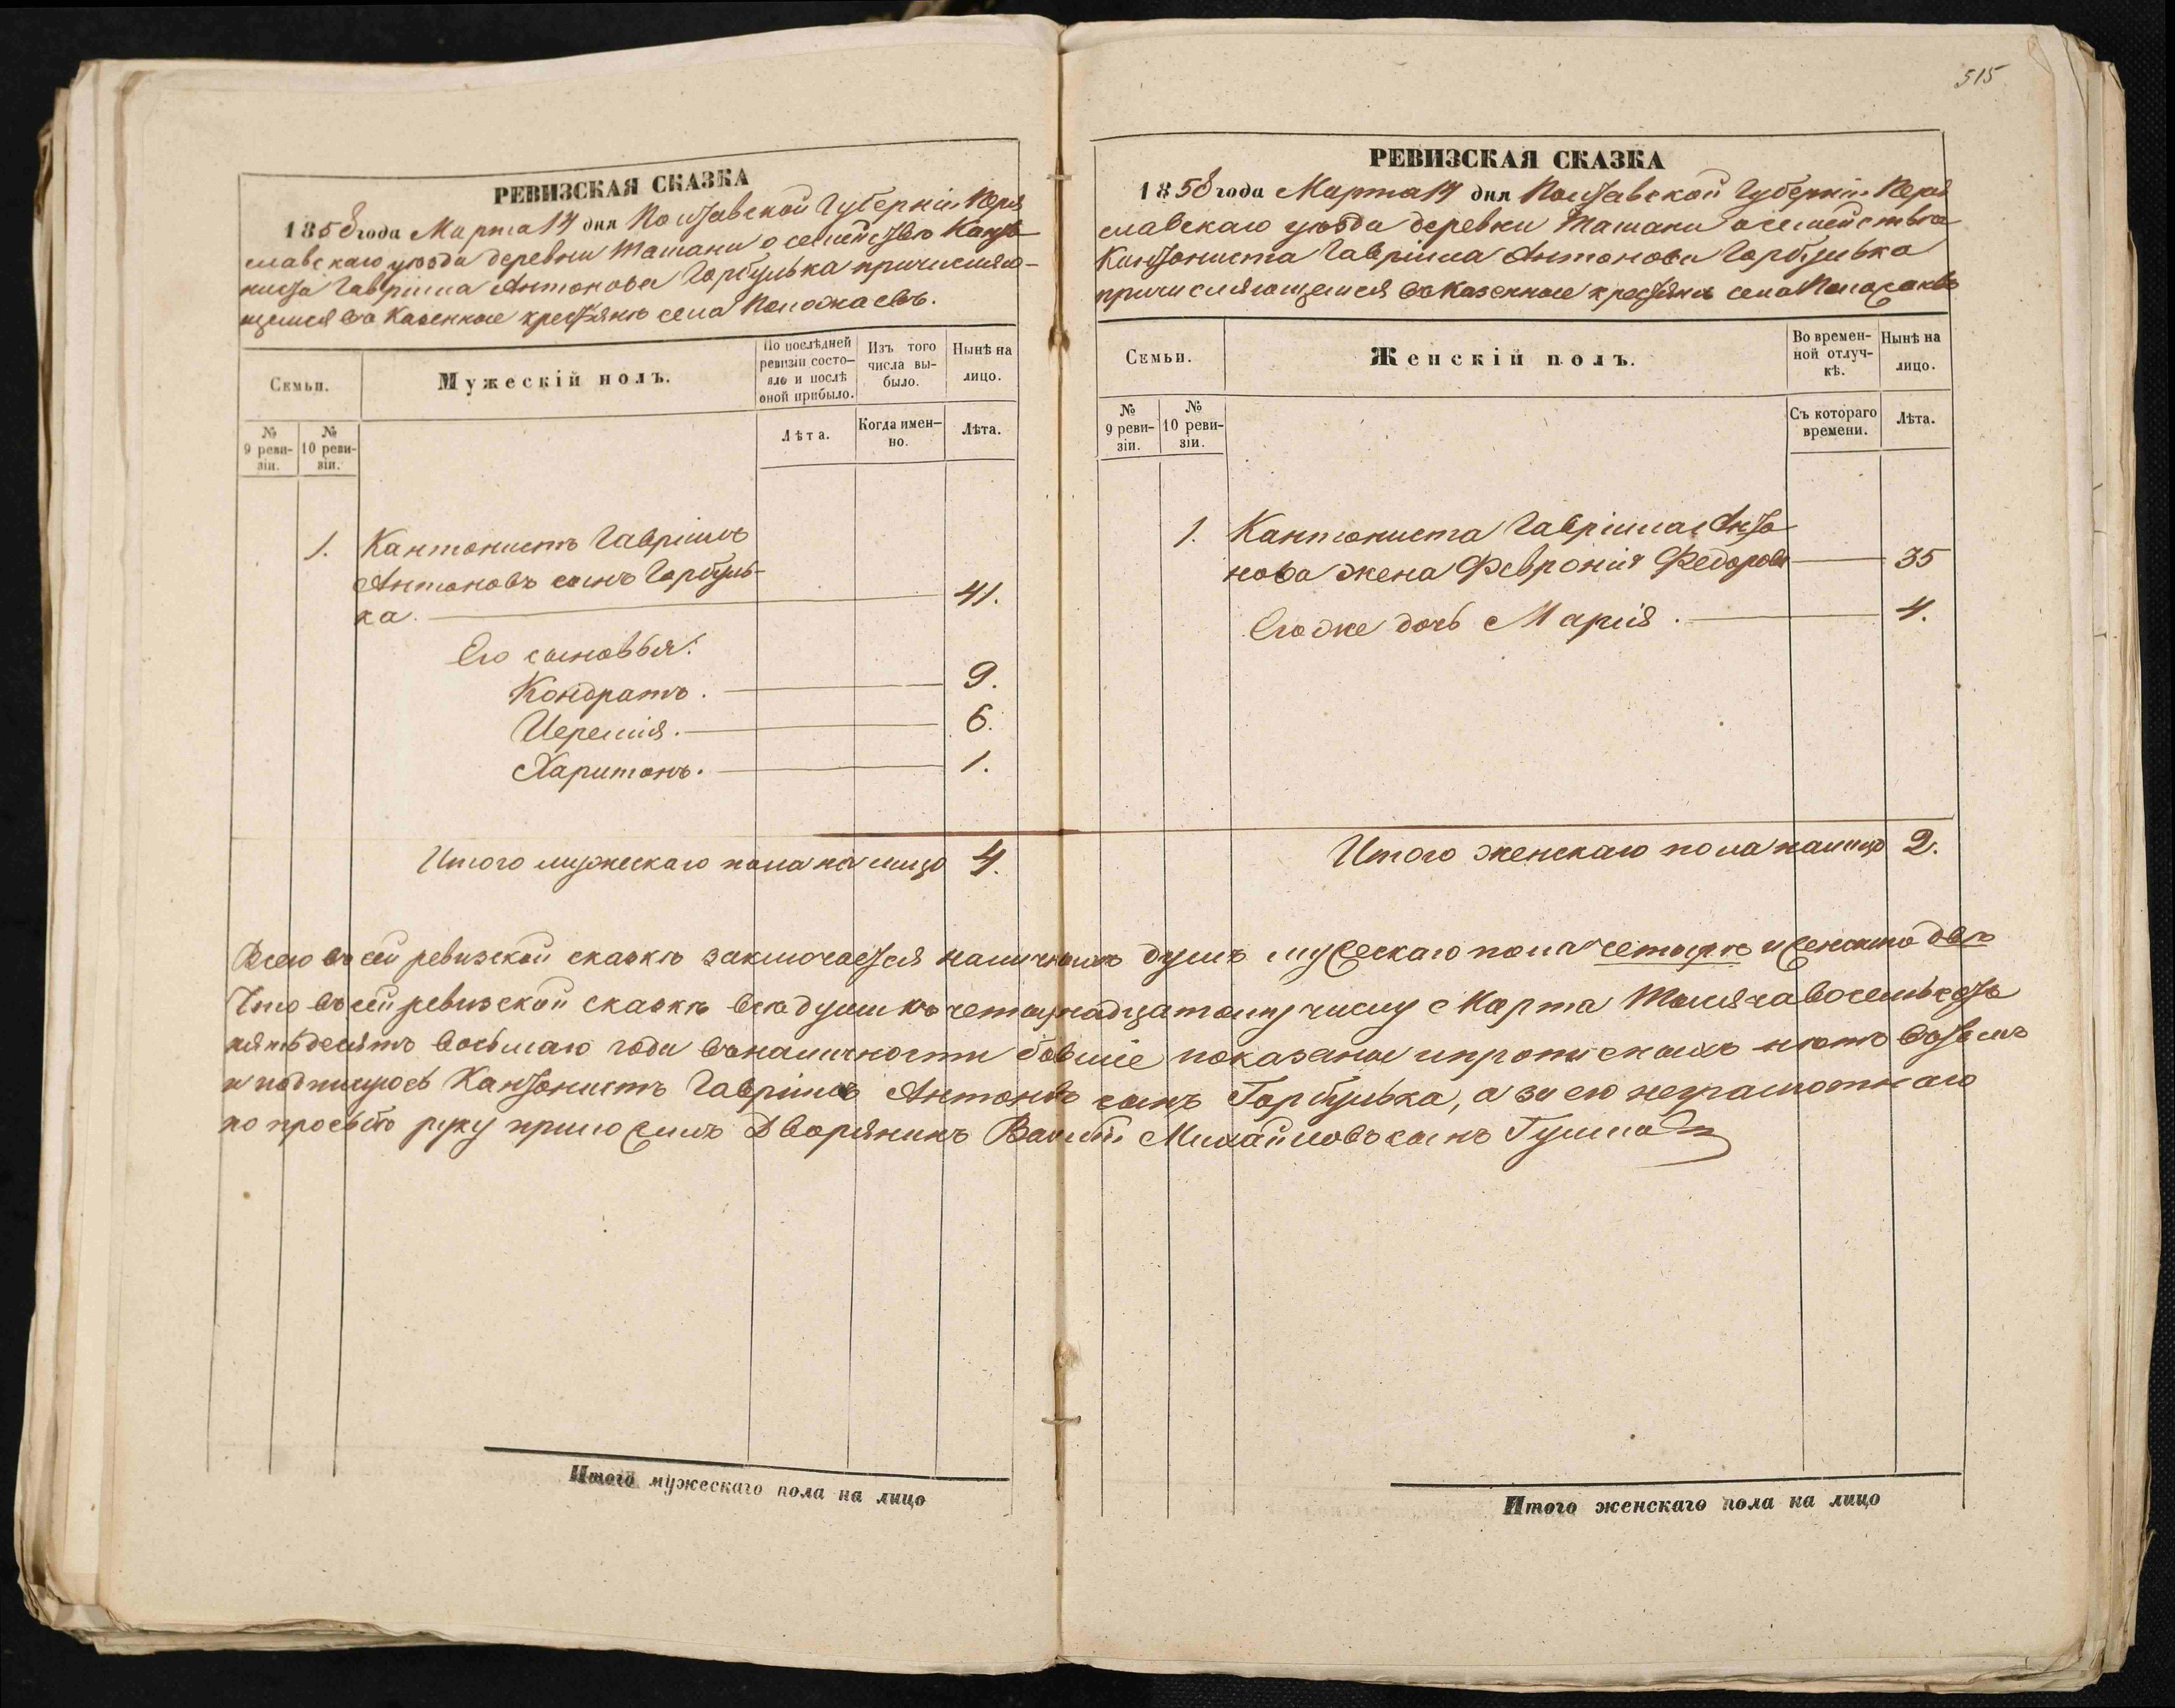 515
РЕВИЗСКАЯ СКАЗКА
1858 года Марта 14 дня Полтавской Губерніи Перя
славскаго уѣзда деревни Ташани о семействѣ Канто
ниста Гавріила Антонова Горбулька причисляю-
щемся въ Казенные крестьяне села Положаевъ.
Семьи.
Мужескій полъ.
По послѣдней ревизіи состо-яло и послѣ оной прибыло.
Изъ того числа вы-было.
Нынѣ на лицо.
№ 9 реви-зіи.
№ 10 реви-зіи.
Лѣта.
Когда имен-но.
Лѣта.
1. Кантонистъ Гавріилъ
Антоновъ сынъ Горбуль-
ка. 41.
Его сыновья:
Кондратъ. 9.
Иеремія. 6.
Харитонъ. 1.
Итого мужескаго пола на лицо 4.
РЕВИЗСКАЯ СКАЗКА
1858 года Марта 14 дня Полтавской Губерніи Перея
славскаго уѣзда деревни Ташани о семействѣ
Кантониста Гавріила Антонова Горбулька
причисляющемся въ Казенные крестьяне села
Семьи.
Женскій полъ.
Во времен-ной отлуч-кѣ.
Нынѣ на лицо.
№ 9 реви-зіи.
№ 10 реви-зіи.
Съ котораго времени.
Лѣта.
1. Кантониста Гавріила Анто
нова жена Февронія Федорова 35
Его же дочь Марія. 4.
Итого женскаго пола налицо 2.
Всего въ сей ревизской сказкѣ заключается наличныхъ душъ мужескаго пола четыре и женскаго двѣ
Что въ сей ревизской сказкѣ всѣ души къ четырнадцатому числу Марта Тысяча восемьсотъ
пятьдесятъ восьмаго года въ наличности бывшіе показаны и прописныхъ нѣтъ въ томъ
и подпишусь Кантонистъ Гавріилъ Антоновъ сынъ Горбулька, а за его неграмотнаго
по прозьбѣ руку приложилъ Дворянинъ Василій Михайловъ сынъ
Итого мужескаго пола на лицо
Итого женскаго пола на лицо